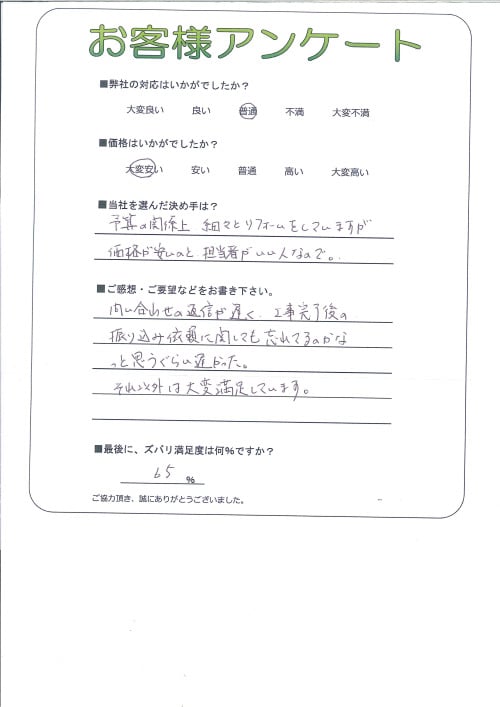 お客様アンケート
■弊社の対応はいかがでしたか？
大変良い 良い 普通 不満 大変不満
■価格はいかがでしたか？
大変安い 安い 普通 高い 大変高い
■当社を選んだ決め手は？
予算の関係上 細々とリフォームをしていますが
価格が安いのと、担当者がいい人なので。
■ご感想・ご要望などをお書き下さい。
問い合わせの返信が遅く、工事完了後の
振り込み依頼に関しても忘れてるのかな
っと思うぐらい遅かった。
それ以外は大変満足しています。
■最後に、ズバリ満足度は何%ですか？
65 %
ご協力頂き、誠にありがとうございました。